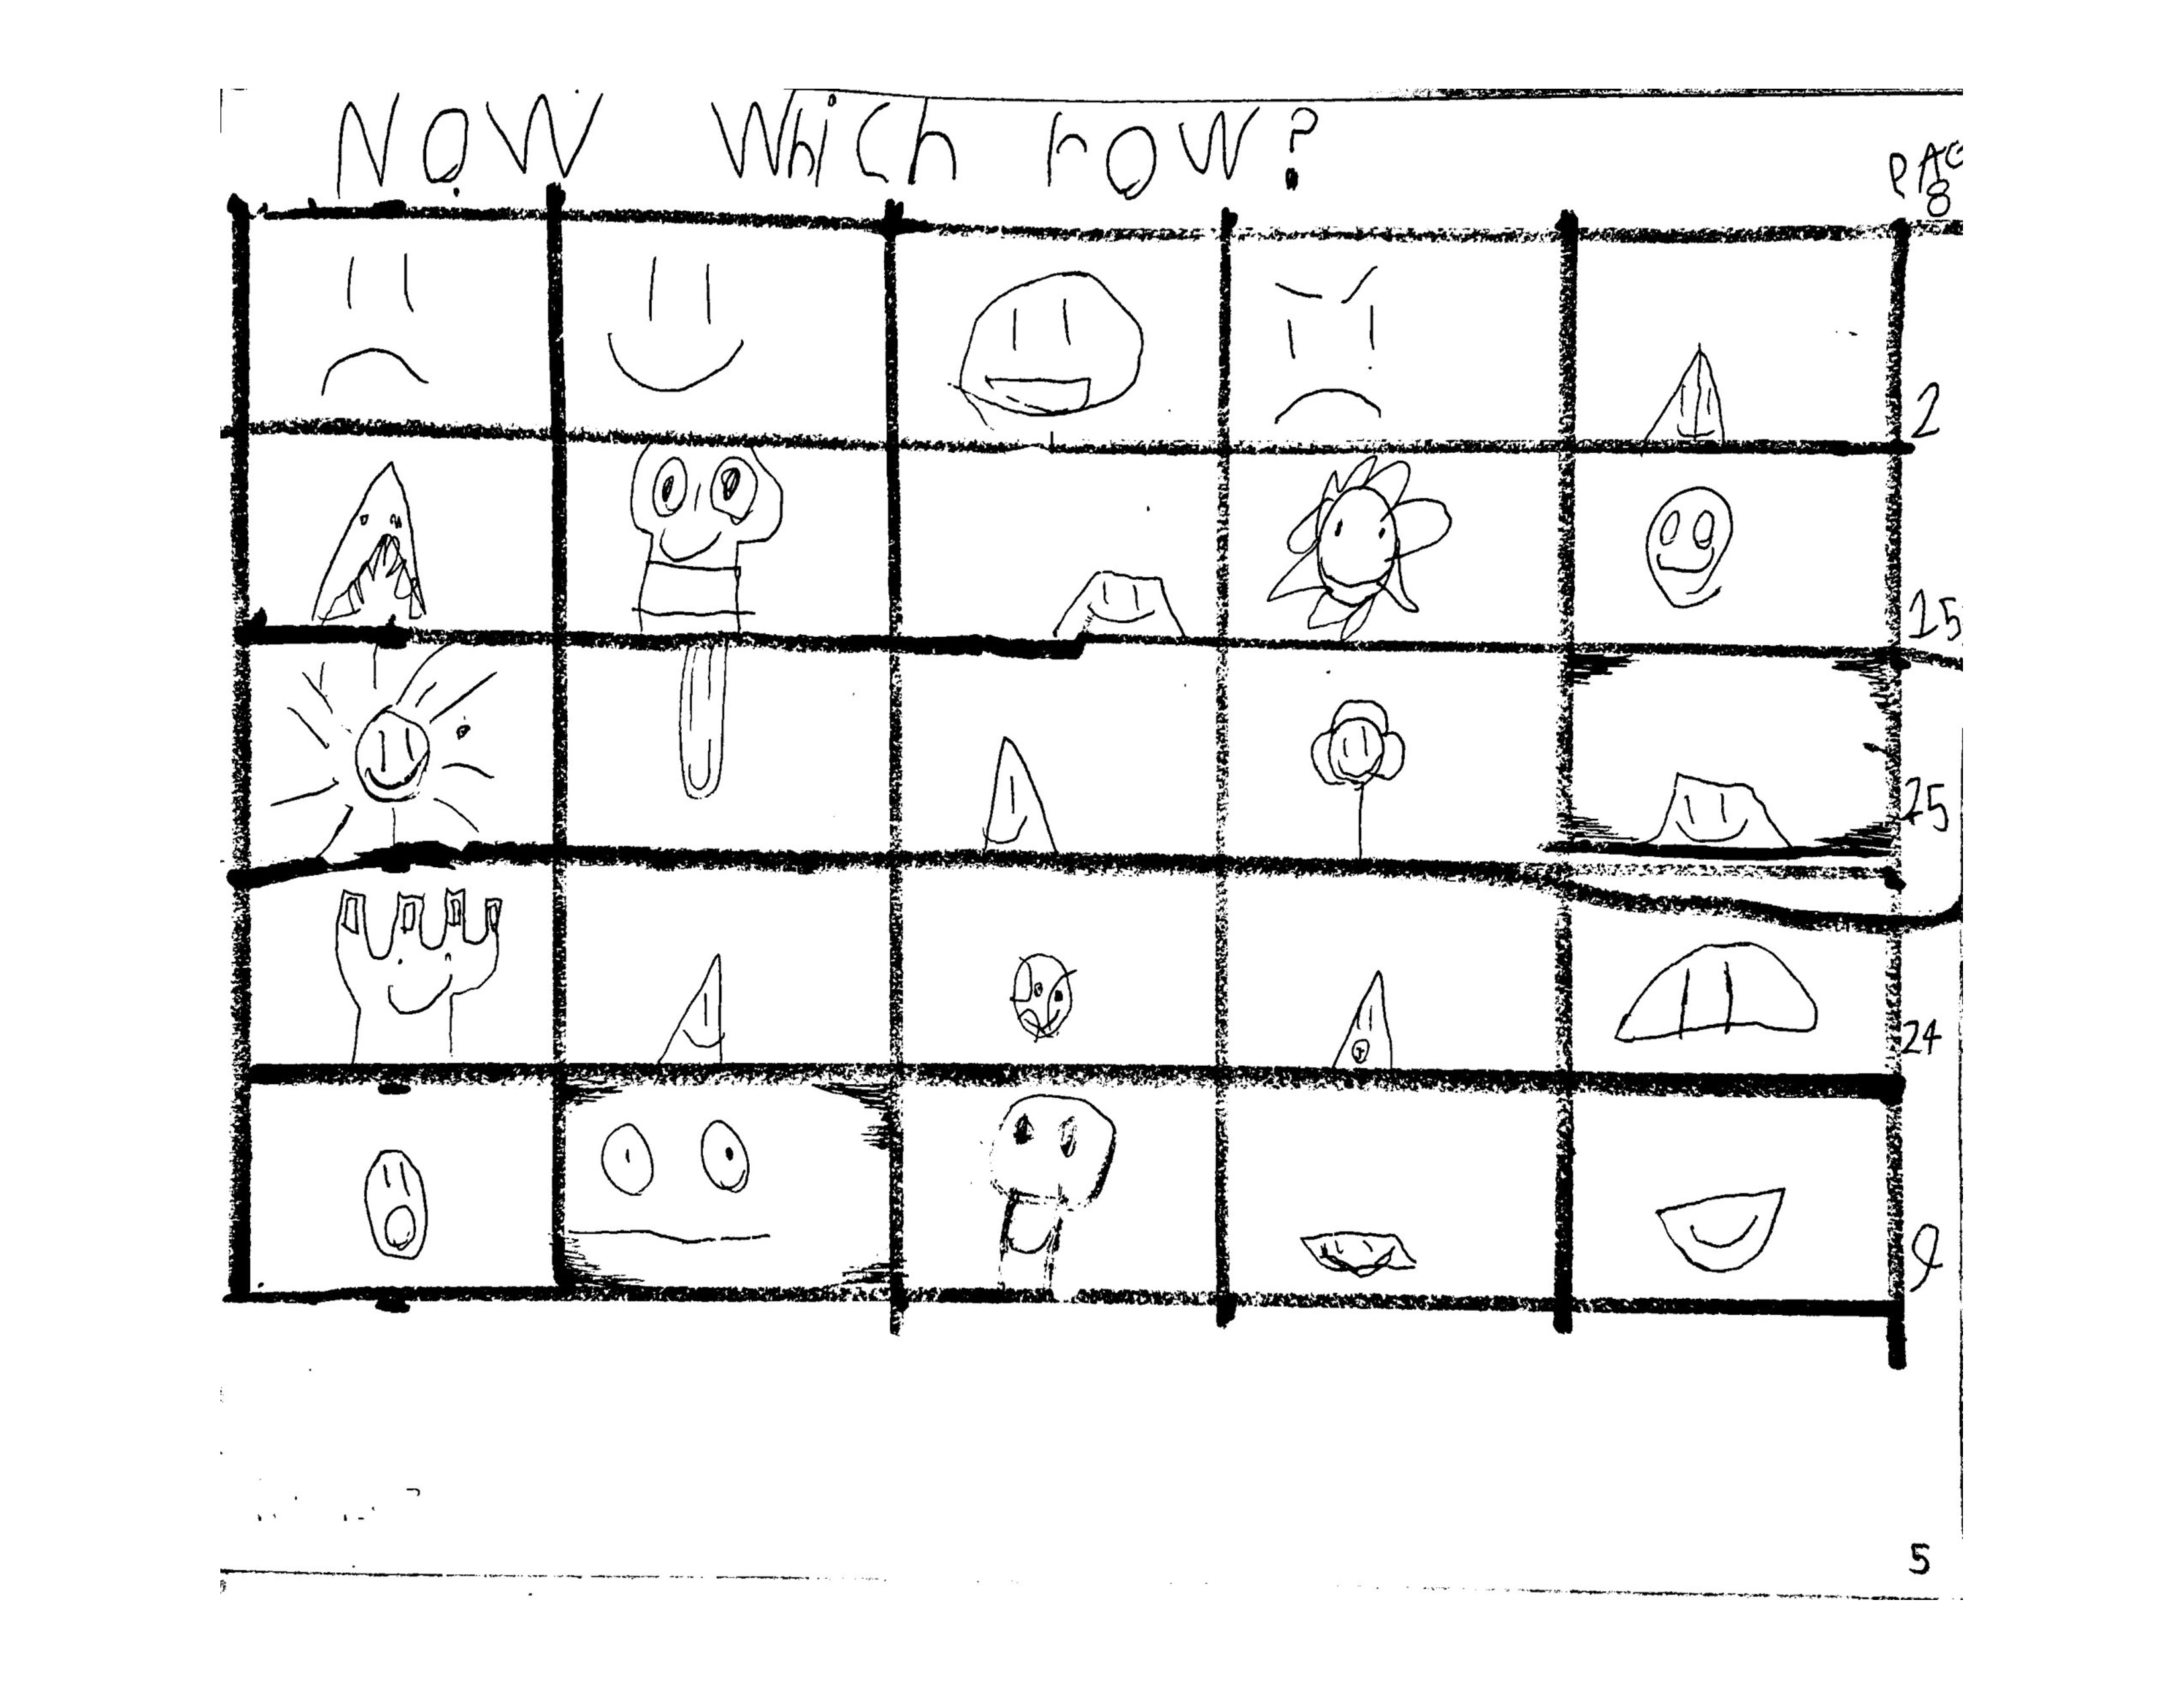 NOW Which row?
PAG
8
2
15
25
24
9
5